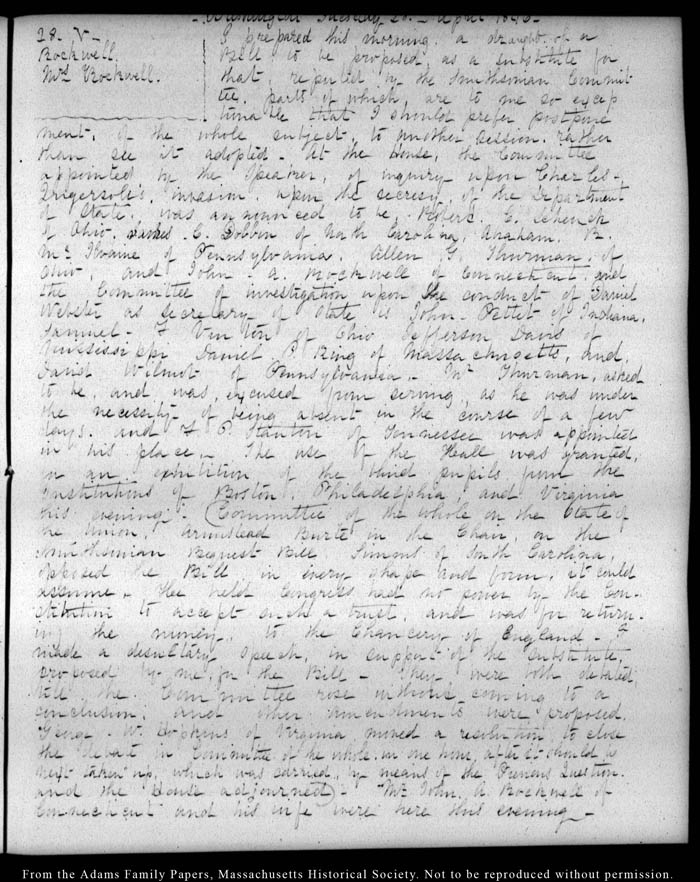 Washington Tuesday 28. April 1846.
28. V-
Rockwell.
Mrs Rockwell.
I prepared this morning, a draught of a
Bill to be proposed, as a substitute for
that, reported by the Smithsonian Commit-
tee, parts of which, are to me so excep
tionable that I should prefer postpone
ment, of the whole subject, to another session, rather
than see it adopted. At the House, the Committee
appointed by the Speaker, of inquiry upon Charles-
Ingersoll's, invasion, upon the secresy, of the Department
of State, was announced to be, Robert C. Schenck
of Ohio, James C. Dobbin of North Carolina, Abraham. R.
McIlvaine of Pennsylvania. Allen G. Thurman, of
Ohio, and John. A. Rockwell of Connecticut: and
the Committee of investigation upon the conduct of Daniel
Webster as Secretary of State is John- Pettet of Indiana,
Samuel- F Vinton of Ohio Jefferson Davis of
Mississippi Daniel P. King of Massachusetts, and,
David Wilmot of Pennsylvania- Mr Thurman, asked
to be, and was, excused from serving, as he was under
the necessity of being absent in the course of a few
days. and F P. Stanton of Tennessee was appointed
in his place,- The use of the Hall was granted,
for an exhibition, of the blind pupils from the
Institutions of Boston, Philadelphia, and Virginia
this evening: Committee of the whole on the State of
the Union. Armistead Burt in the Chair, on the
Smithsonian Bequest Bill Simms of South Carolina,
opposed the Bill in every shape and form, it could
assume- He held Congress had no power by the Con-
stitution to accept such a trust, and was for return-
ing the money, to the Chancery of England- I
made a desultary speech, in support of the substitute,
proposed by me, for the Bill- They were both debated
till the Committee rose without coming to a
conclusion, and other amendments were proposed.
George- W. Hopkins of Virginia, moved a resolution to close
the debate in Committee of the whole in one hour, after it should be
next taken up, which was carried, by means of the Previous Question.
and the House adjourned- Mr John, A Rockwell of
Connecticut and his wife were here this evening-
From the Adams Family Papers, Massachusetts Historical Society. Not to be reproduced without permission.